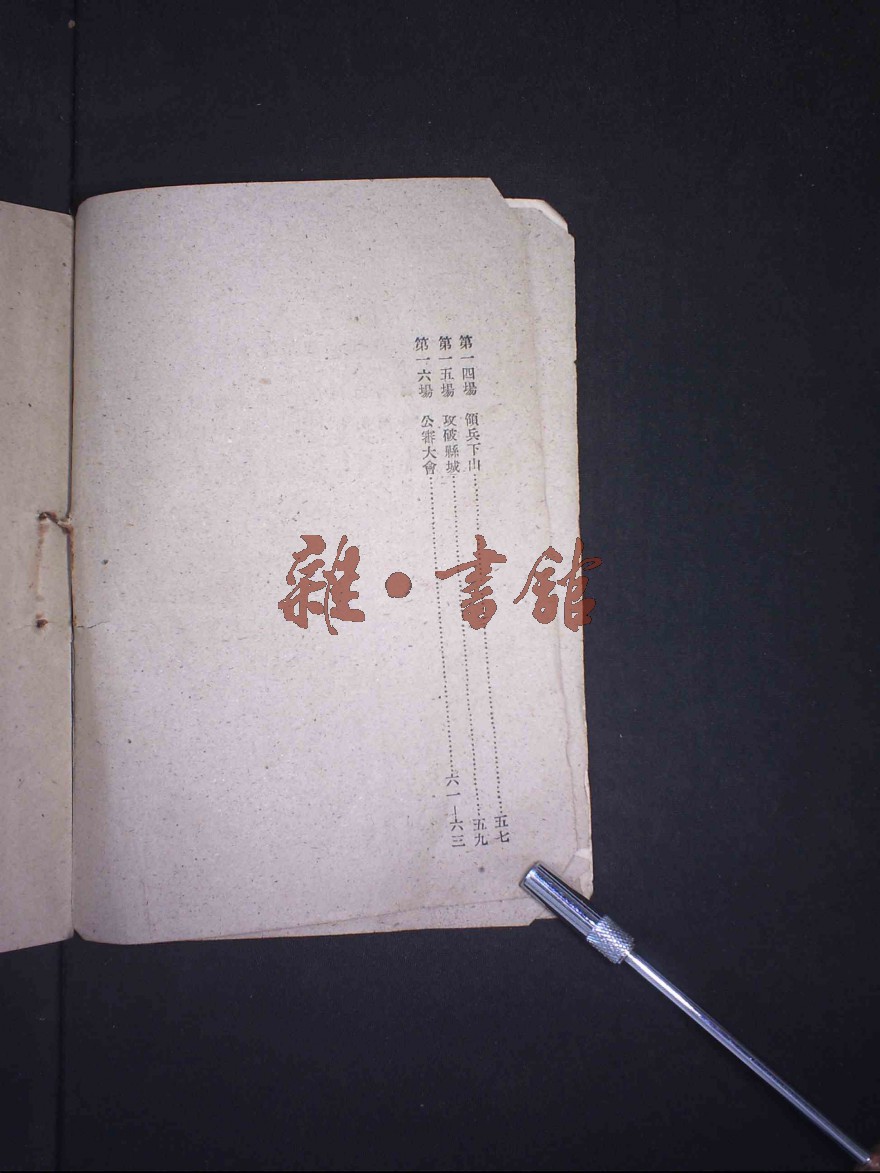 第一四場　領兵下山……五七
第一五場　攻破縣城……五九
第一六場　公審大會……六一—六三
雜·書館